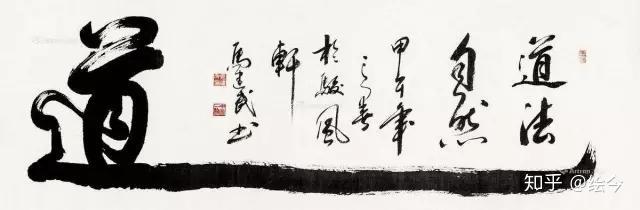 道法
自然
甲午年
之春
於駿風
軒
馬建民书
道
知乎 @绘今